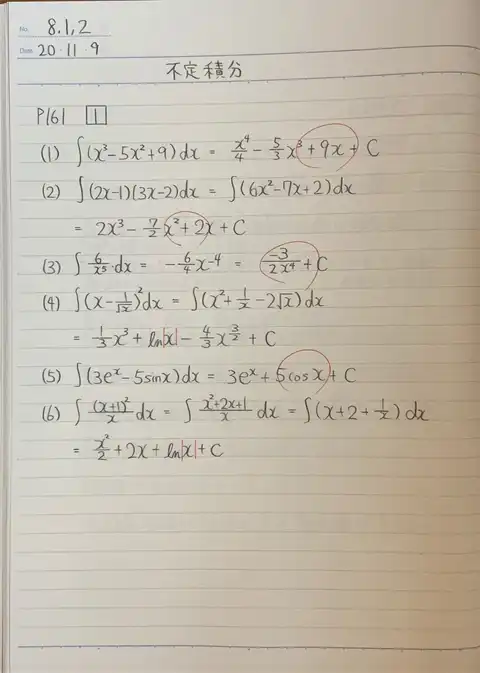 No. 8.1,2
Date 20・11・9
不定積分
P161 1
(1) ∫(x³-5x²+9)dx = x⁴/4 - 5/3 x³ + 9x + C
(2) ∫(2x-1)(3x-2)dx = ∫(6x²-7x+2)dx
= 2x³ - 7/2 x² + 2x + C
(3) ∫ 6/x⁵ dx = -6/4 x⁻⁴ = -3/2x⁴ + C
(4) ∫(x - 1/√x)² dx = ∫(x² + 1/x - 2√x)dx
= 1/3 x³ + ln|x| - 4/3 x^(3/2) + C
(5) ∫(3eˣ - 5sinx)dx = 3eˣ + 5cosx + C
(6) ∫ (x+1)²/x dx = ∫ x²+2x+1/x dx = ∫(x + 2 + 1/x)dx
= x²/2 + 2x + ln|x| + C